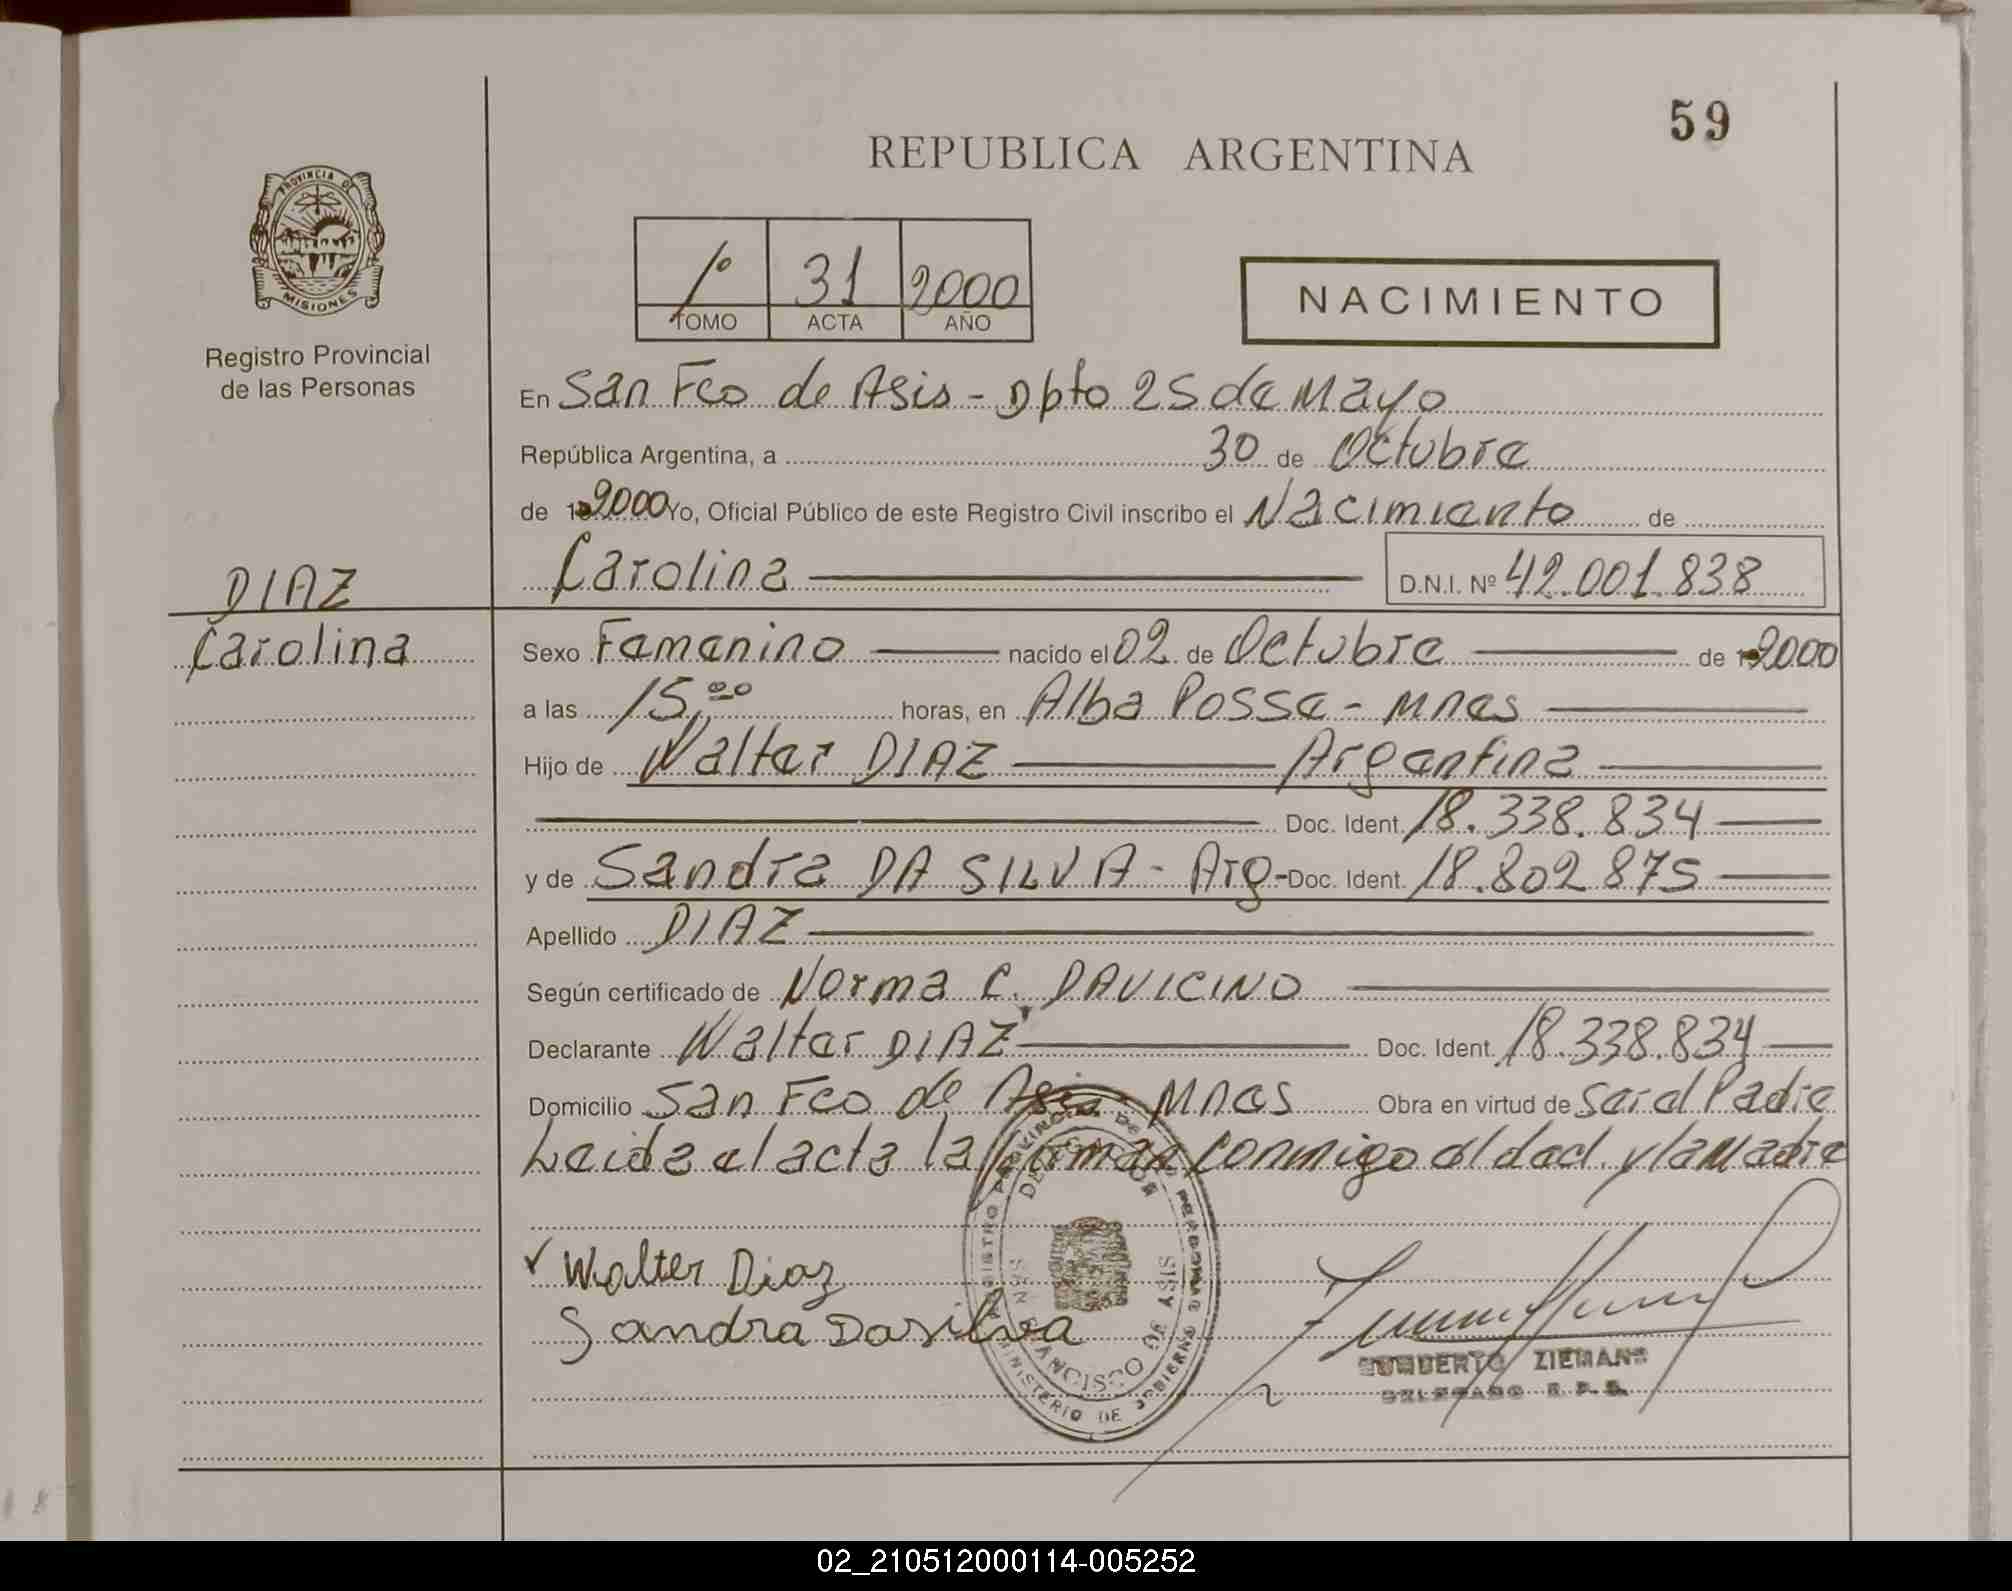 59
REPUBLICA ARGENTINA
PROVINCIA DE
MISIONES
Registro Provincial
de las Personas
1º 31 2000
TOMO ACTA AÑO
NACIMIENTO
En San Fco de Asis - Dpto 25 de Mayo
República Argentina, a 30 de Octubre
de 2000 Yo, Oficial Público de este Registro Civil inscribo el Nacimiento de
Carolina D.N.I. Nº 42.001.838
DIAZ
Carolina
Sexo Femenino nacido el 02 de Octubre de 2000
a las 15,00 horas, en Alba Posse - Mnes
Hijo de Walter DIAZ Argentina
Doc. Ident. 18.338.834
y de Sandra DA SILVA - Arg- Doc. Ident. 18.802.875
Apellido DIAZ
Según certificado de Norma C. DAVICINO
Declarante Walter DIAZ Doc. Ident. 18.338.834
Domicilio San Fco de Asis - Mnes Obra en virtud de ser el Padre
Leida el acta la firman conmigo el dad. y la Madre
Walter Diaz
Sandra Dasilva
REGISTRO PROVINCIAL DE LAS PERSONAS
SAN FRANCISCO DE ASIS
MINISTERIO DE GOBIERNO
HUMBERTO ZIEMANN
DELEGADO R. P. P.
02_210512000114-005252